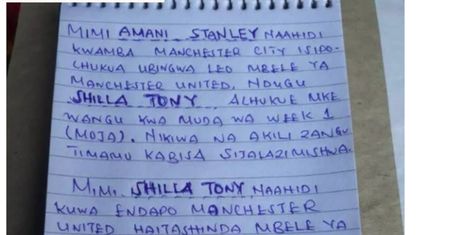 MIMI AMANI STANLEY NAAHIDI
KWAMBA MANCHESTER CITY ISIPO-
CHUKUA UBINGWA LEO MBELE YA
MANCHESTER UNITED. NDUGU
SHILLA TONY ACHUKUE MKE
WANGU KWA MUDA WA WEEK 1
(MOJA). NIKIWA NA AKILI ZANGU
TIMAMU KABISA SIJALAZIMISHWA.
MIMI SHILLA TONY NAAHIDI
KUWA ENDAPO MANCHESTER
UNITED HAITASHINDA MBELE YA